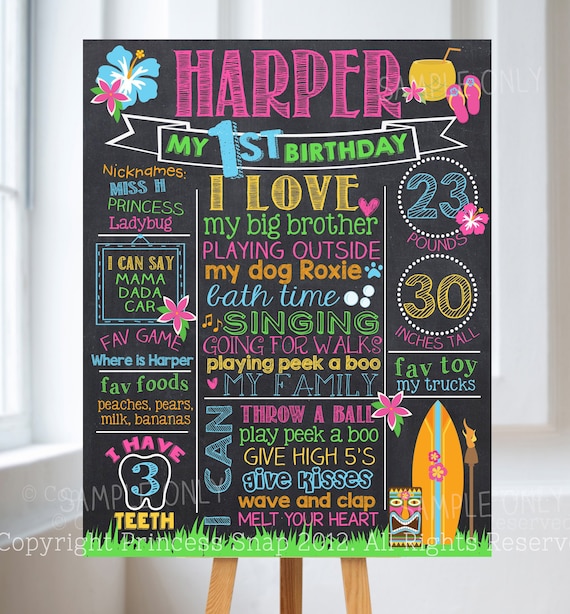 HARPER
MY 1ST BIRTHDAY
Nicknames:
MISS H
PRINCESS
Ladybug
I CAN SAY
MAMA
DADA
CAR
FAV GAME
Where is Harper
fav foods
peaches, pears,
milk, bananas
I HAVE
3
TEETH
I LOVE
my big brother
PLAYING OUTSIDE
my dog Roxie
bath time
SINGING
GOING FOR WALKS
playing peek a boo
MY FAMILY
I CAN
THROW A BALL
play peek a boo
GIVE HIGH 5'S
give kisses
wave and clap
MELT YOUR HEART
23
POUNDS
30
INCHES TALL
fav toy
my trucks
SAMPLE ONLY
SAMPLE ONLY
SAMPLE ONLY
Copyright Princess Snap 2012. All Rights Reserve